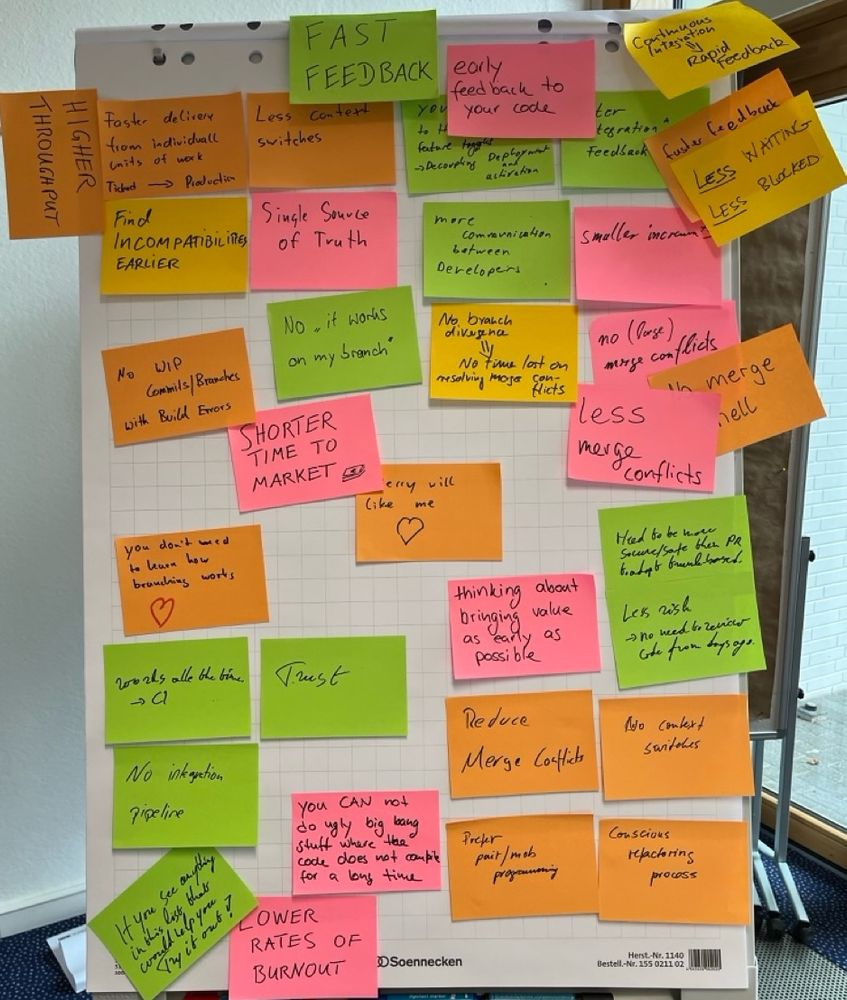 FAST
FEEDBACK
early
feedback to
your code
Continuous
Integration
⇓
Rapid
Feedback
HIGHER
THROUGHPUT
Faster delivery
from individuall
units of work
Ticket → Production
Less context
switches
you
to th
feature toggle
→ Decoupling Deployment
and
activation
tegration
Feedback
faster feedback
LESS WAITING
LESS BLOCKED
Find
INCOMPATIBILITIES
EARLIER
Single Source
of Truth
more
communication
between
Developers
smaller increm
No "it works
on my branch"
No branch
divergence
⇓
No time lost on
resolving merge con-
flicts
no (large)
merge conflicts
No merge
hell
No WIP
Commits/Branches
with Build Errors
SHORTER
TIME TO
MARKET
less
merge
conflicts
erry will
like me
you don't need
to learn how
branching works
Need to be more
secure/safe then PR
to adopt trunk-based.
Less risk
→ no need to review
code from days ago.
thinking about
bringing value
as early as
possible
works alle the time
→ CI
Trust
Reduce
Merge Conflicts
No context
switches
No integration
pipeline
you CAN not
do ugly big bang
stuff where the
code does not compile
for a long time
Prefer
pair/mob
programming
Conscious
refactoring
process
If you see anything
in this list that's
would help you
Try it out!
LOWER
RATES OF
BURNOUT
Soennecken
Herst.-Nr. 1140
Bestell.-Nr. 155 0211 02